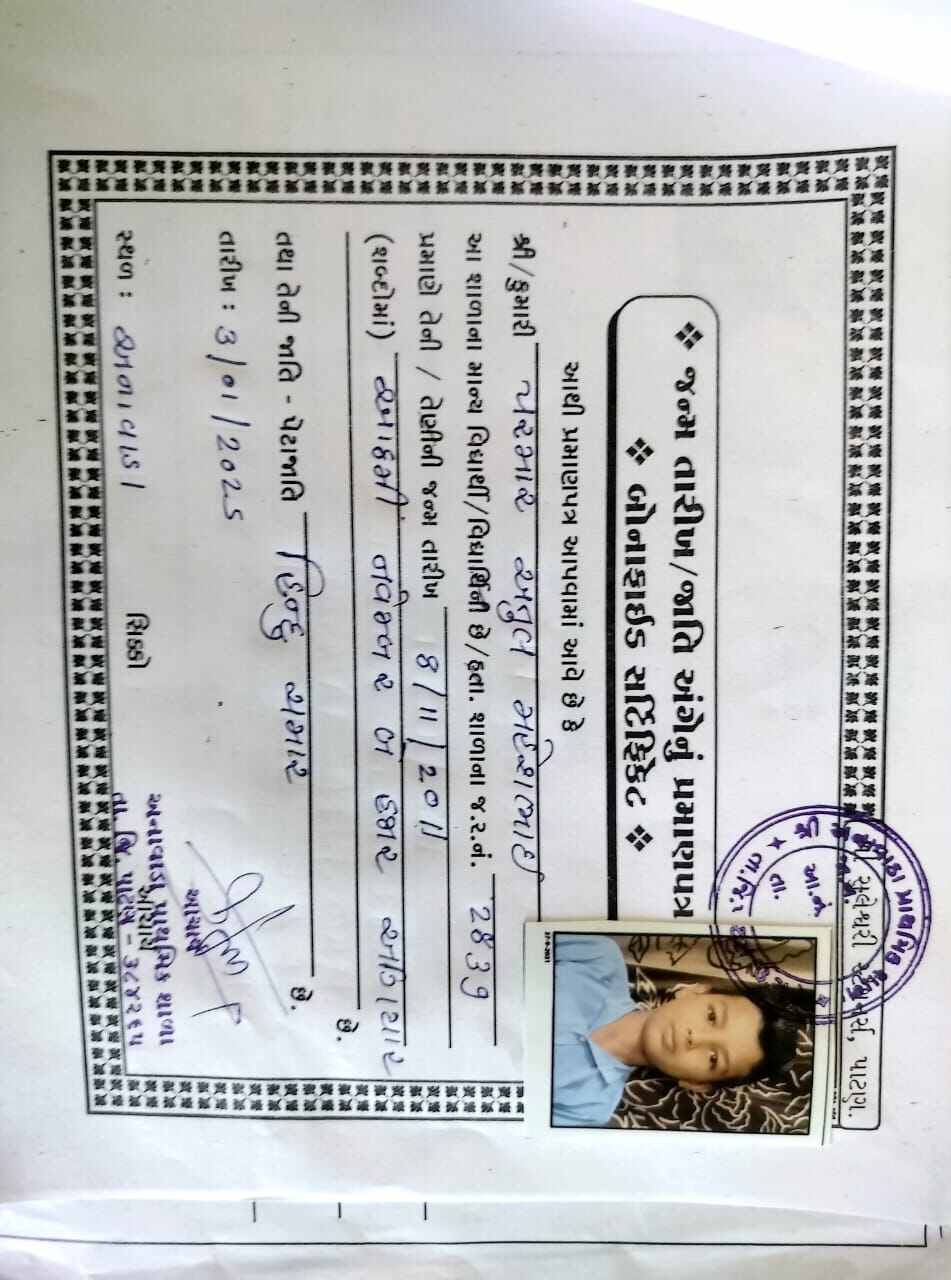 સ્ટેશનર્સ, પાટણ.
❖ જન્મ તારીખ/જાતિ અંગેનું પ્રમાણપત્ર
❖ બોનાફાઈડ સર્ટિફિકેટ ❖
આથી પ્રમાણપત્ર આપવામાં આવે છે કે
શ્રી/કુમારી પરમાર અતુલ મહેશભાઈ
આ શાળાના માન્ય વિદ્યાર્થી/વિદ્યાર્થિની છે/હતા. શાળાના જ.ર.નં. 2839
પ્રમાણે તેની / તેણીની જન્મ તારીખ 8/11/2011
(શબ્દોમાં) આઠમી નવેમ્બર બે હજાર અગિયાર
છે.
તથા તેની જાતિ - પેટાજાતિ હિન્દુ ચમાર છે.
તારીખ : 3/01/2025
સ્થળ : અનાવાડા
સિક્કો
આચાર્ય
અનાવાડા પ્રાથમિક શાળા
તા. જિ. પાટણ - ૩૮૪૨૬૫